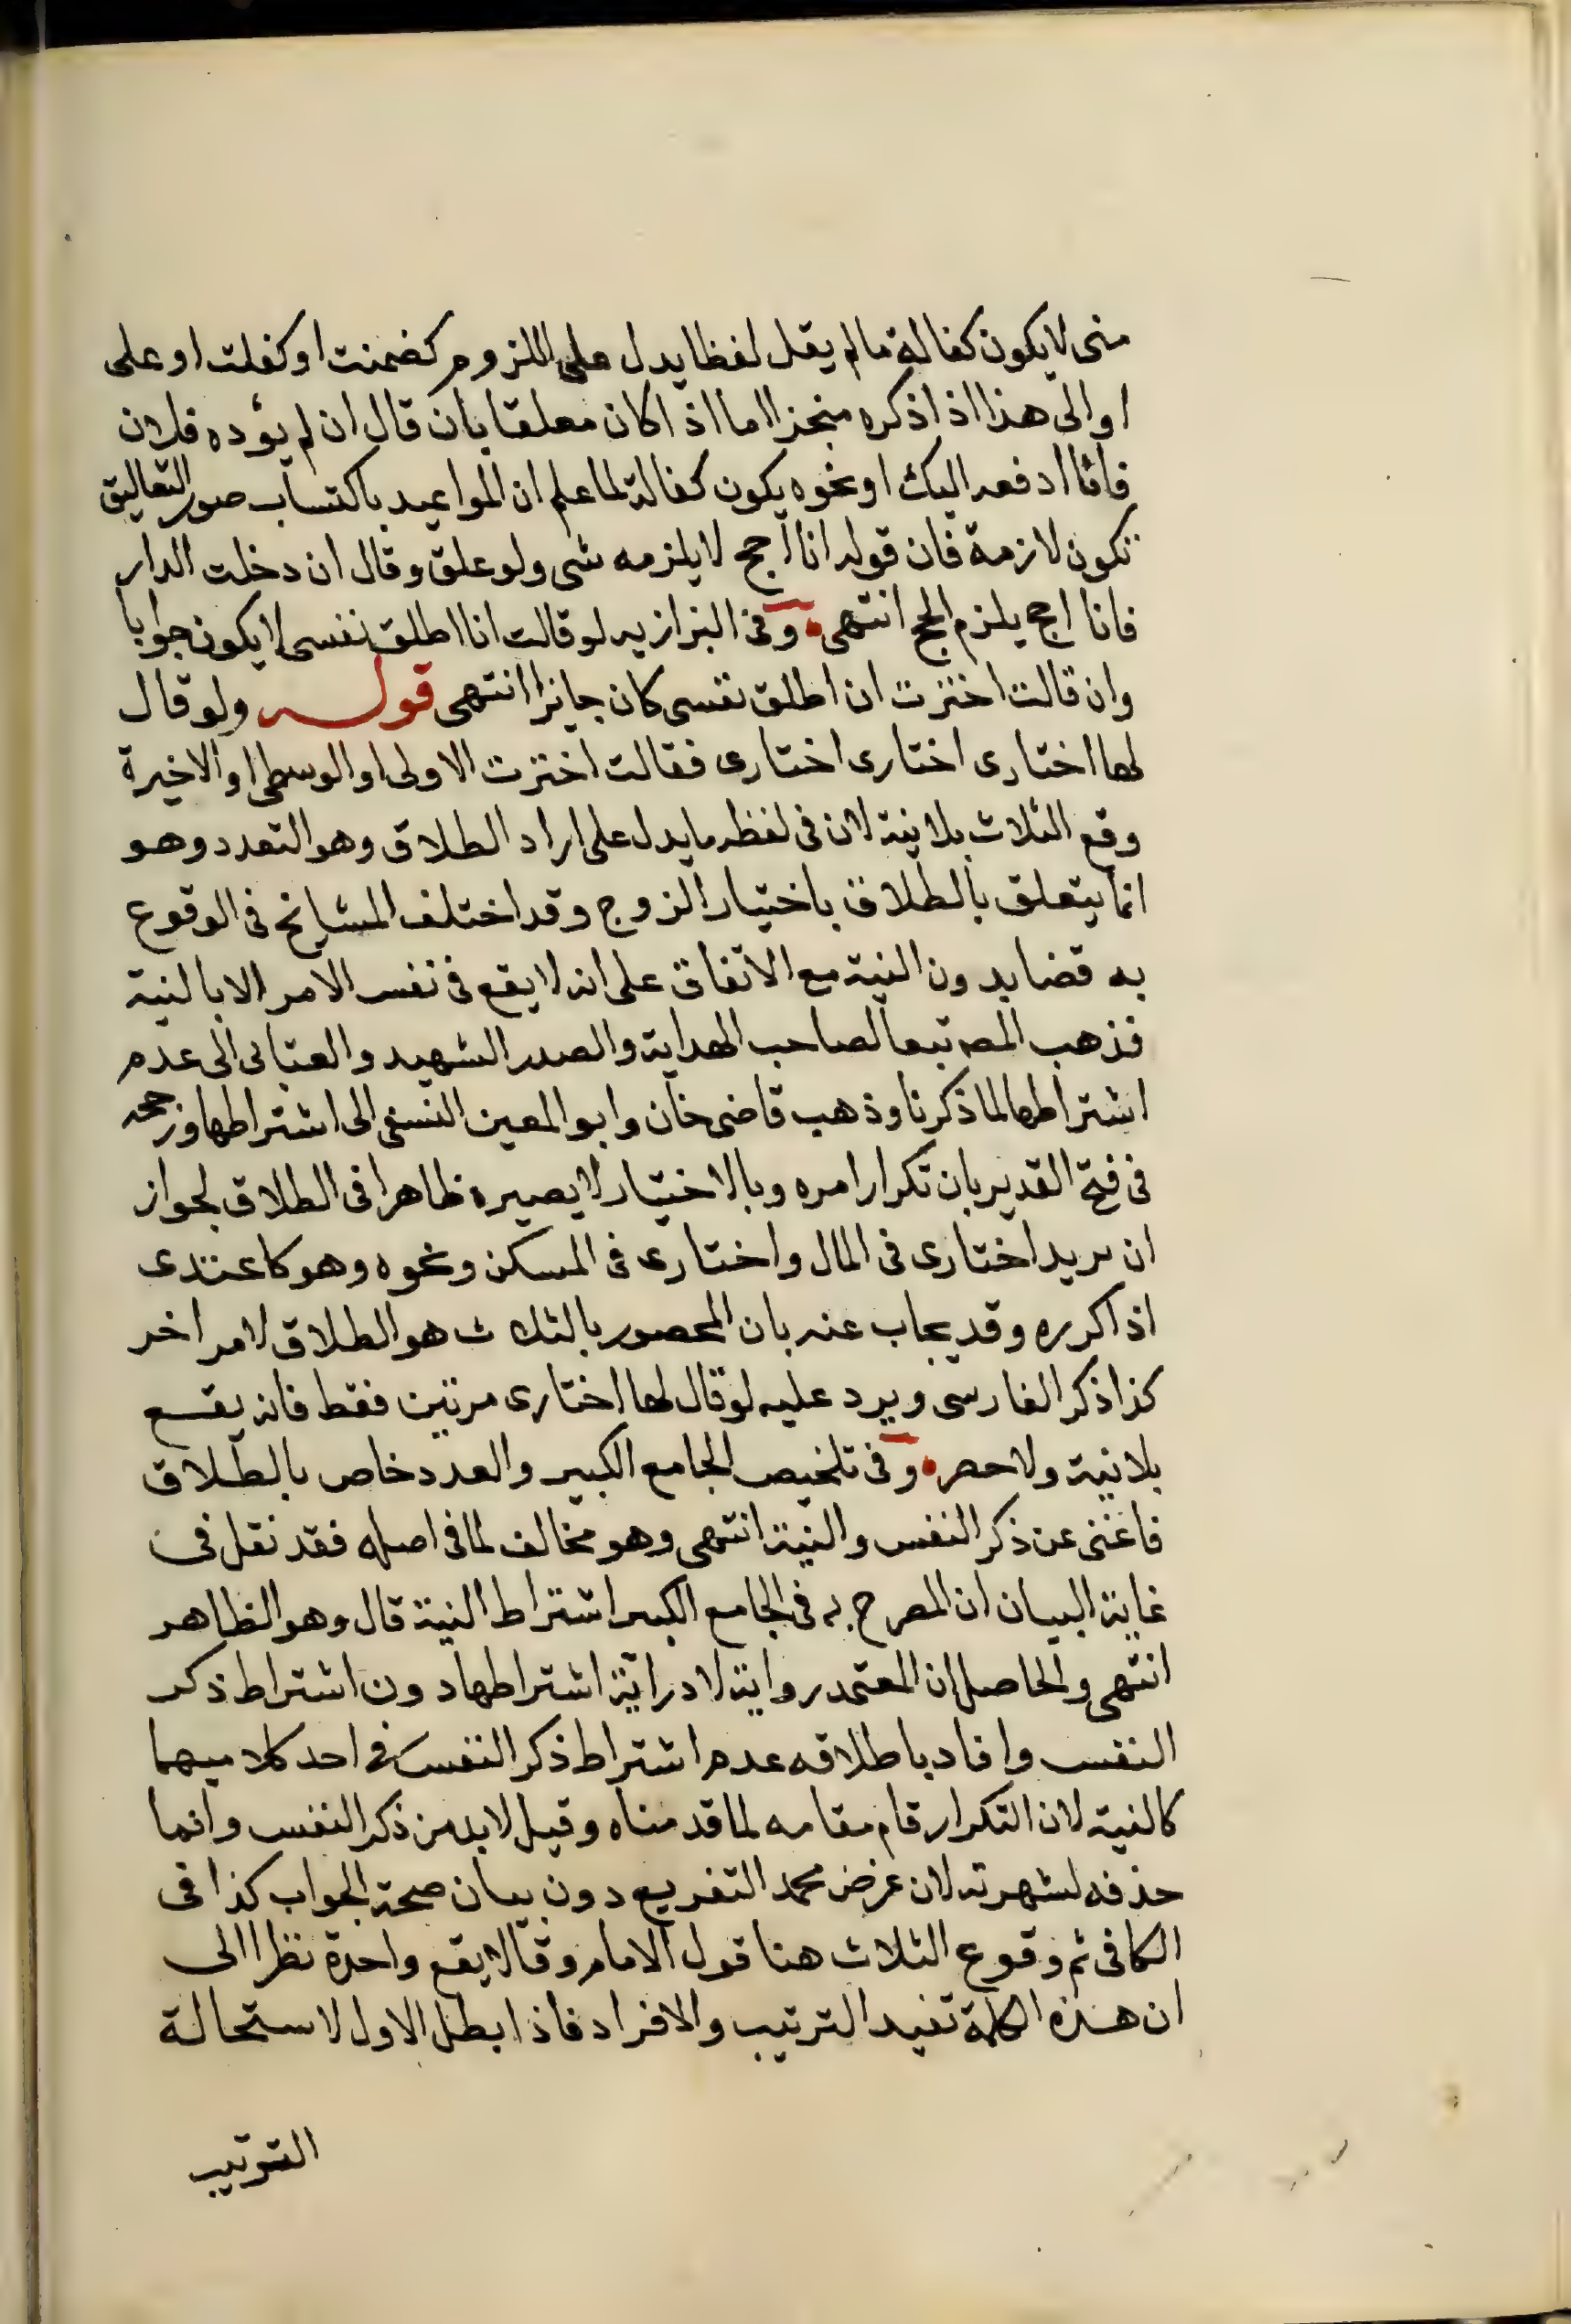 منى لا يكون كفالة ما لم يقل لفظا يدل على اللزوم كضمنت او كفلت او على
او الى هذا اذا ذكره منجزا اما اذا كان معلقا بان قال ان لم يؤده فلان
فانا ادفعه اليك او نحوه يكون كفالة لما علم ان المواعيد باكتساب صور التعاليق
تكون لازمة فان قوله انا احج لا يلزمه شى ولو علق وقال ان دخلت الدار
فانا احج يلزم الحج انتهى وفى البزازيه لو قالت انا اطلق نفسى لا يكون جوابا
وان قالت اخترت ان اطلق نفسى كان جايزا انتهى قوله ولو قال
لها اختارى اختارى اختارى فقالت اخترت الاولى او الوسطى او الاخيرة
وقع الثلاث بلا نية لان فى لفظه ما يدل على اراد الطلاق وهو التعدد وهو
انما يتعلق بالطلاق باختيار الزوج وقد اختلف المشايخ فى الوقوع
به قضا بدون النية مع الاتفاق على انه لا يقع فى نفس الامر الا بالنية
فذهب المصه تبعا لصاحب الهداية والصدر الشهيد والعتابى الى عدم
اشتراطها لما ذكرنا وذهب قاضى خان وابو المعين النسفى الى اشتراطها ورجحه
فى فتح القدير بان تكرار امره وبالاختيار لا يصيره ظاهرا فى الطلاق لجواز
ان يريد اختارى فى المال واختارى فى المسكن ونحوه وهو كاعتدى
اذا كرره وقد يجاب عنه بان المحصور بالثلاث هو الطلاق لامر اخر
كذا ذكر الفارسى ويرد عليه لو قال لها اختارى مرتين فقط فانه يقع
بلا نية ولا حصر وفى تلخيص الجامع الكبير والعدد خاص بالطلاق
فاغنى عن ذكر النفس والنية انتهى وهو مخالف لما فى اصله فقد نقل فى
غاية البيان ان المصرح به فى الجامع الكبير اشتراط النية قال وهو الظاهر
انتهى والحاصل ان المعتمد رواية لا دراية اشتراطها دون اشتراط ذكر
النفس وافاد باطلاقه عدم اشتراط ذكر النفس فى احد كلاميهما
كالنية لان التكرار قام مقامه لما قدمناه وقيل لابد من ذكر النفس وانما
حذفه لشهرته لان غرض محمد التفريع دون بيان صحة الجواب كذا فى
الكافى ثم وقوع الثلاث هنا قول الامام وقالا يقع واحدة نظرا الى
ان هذه الكلمة تفيد الترتيب والافراد فاذا بطل الاول لاستحالة
الترتيب